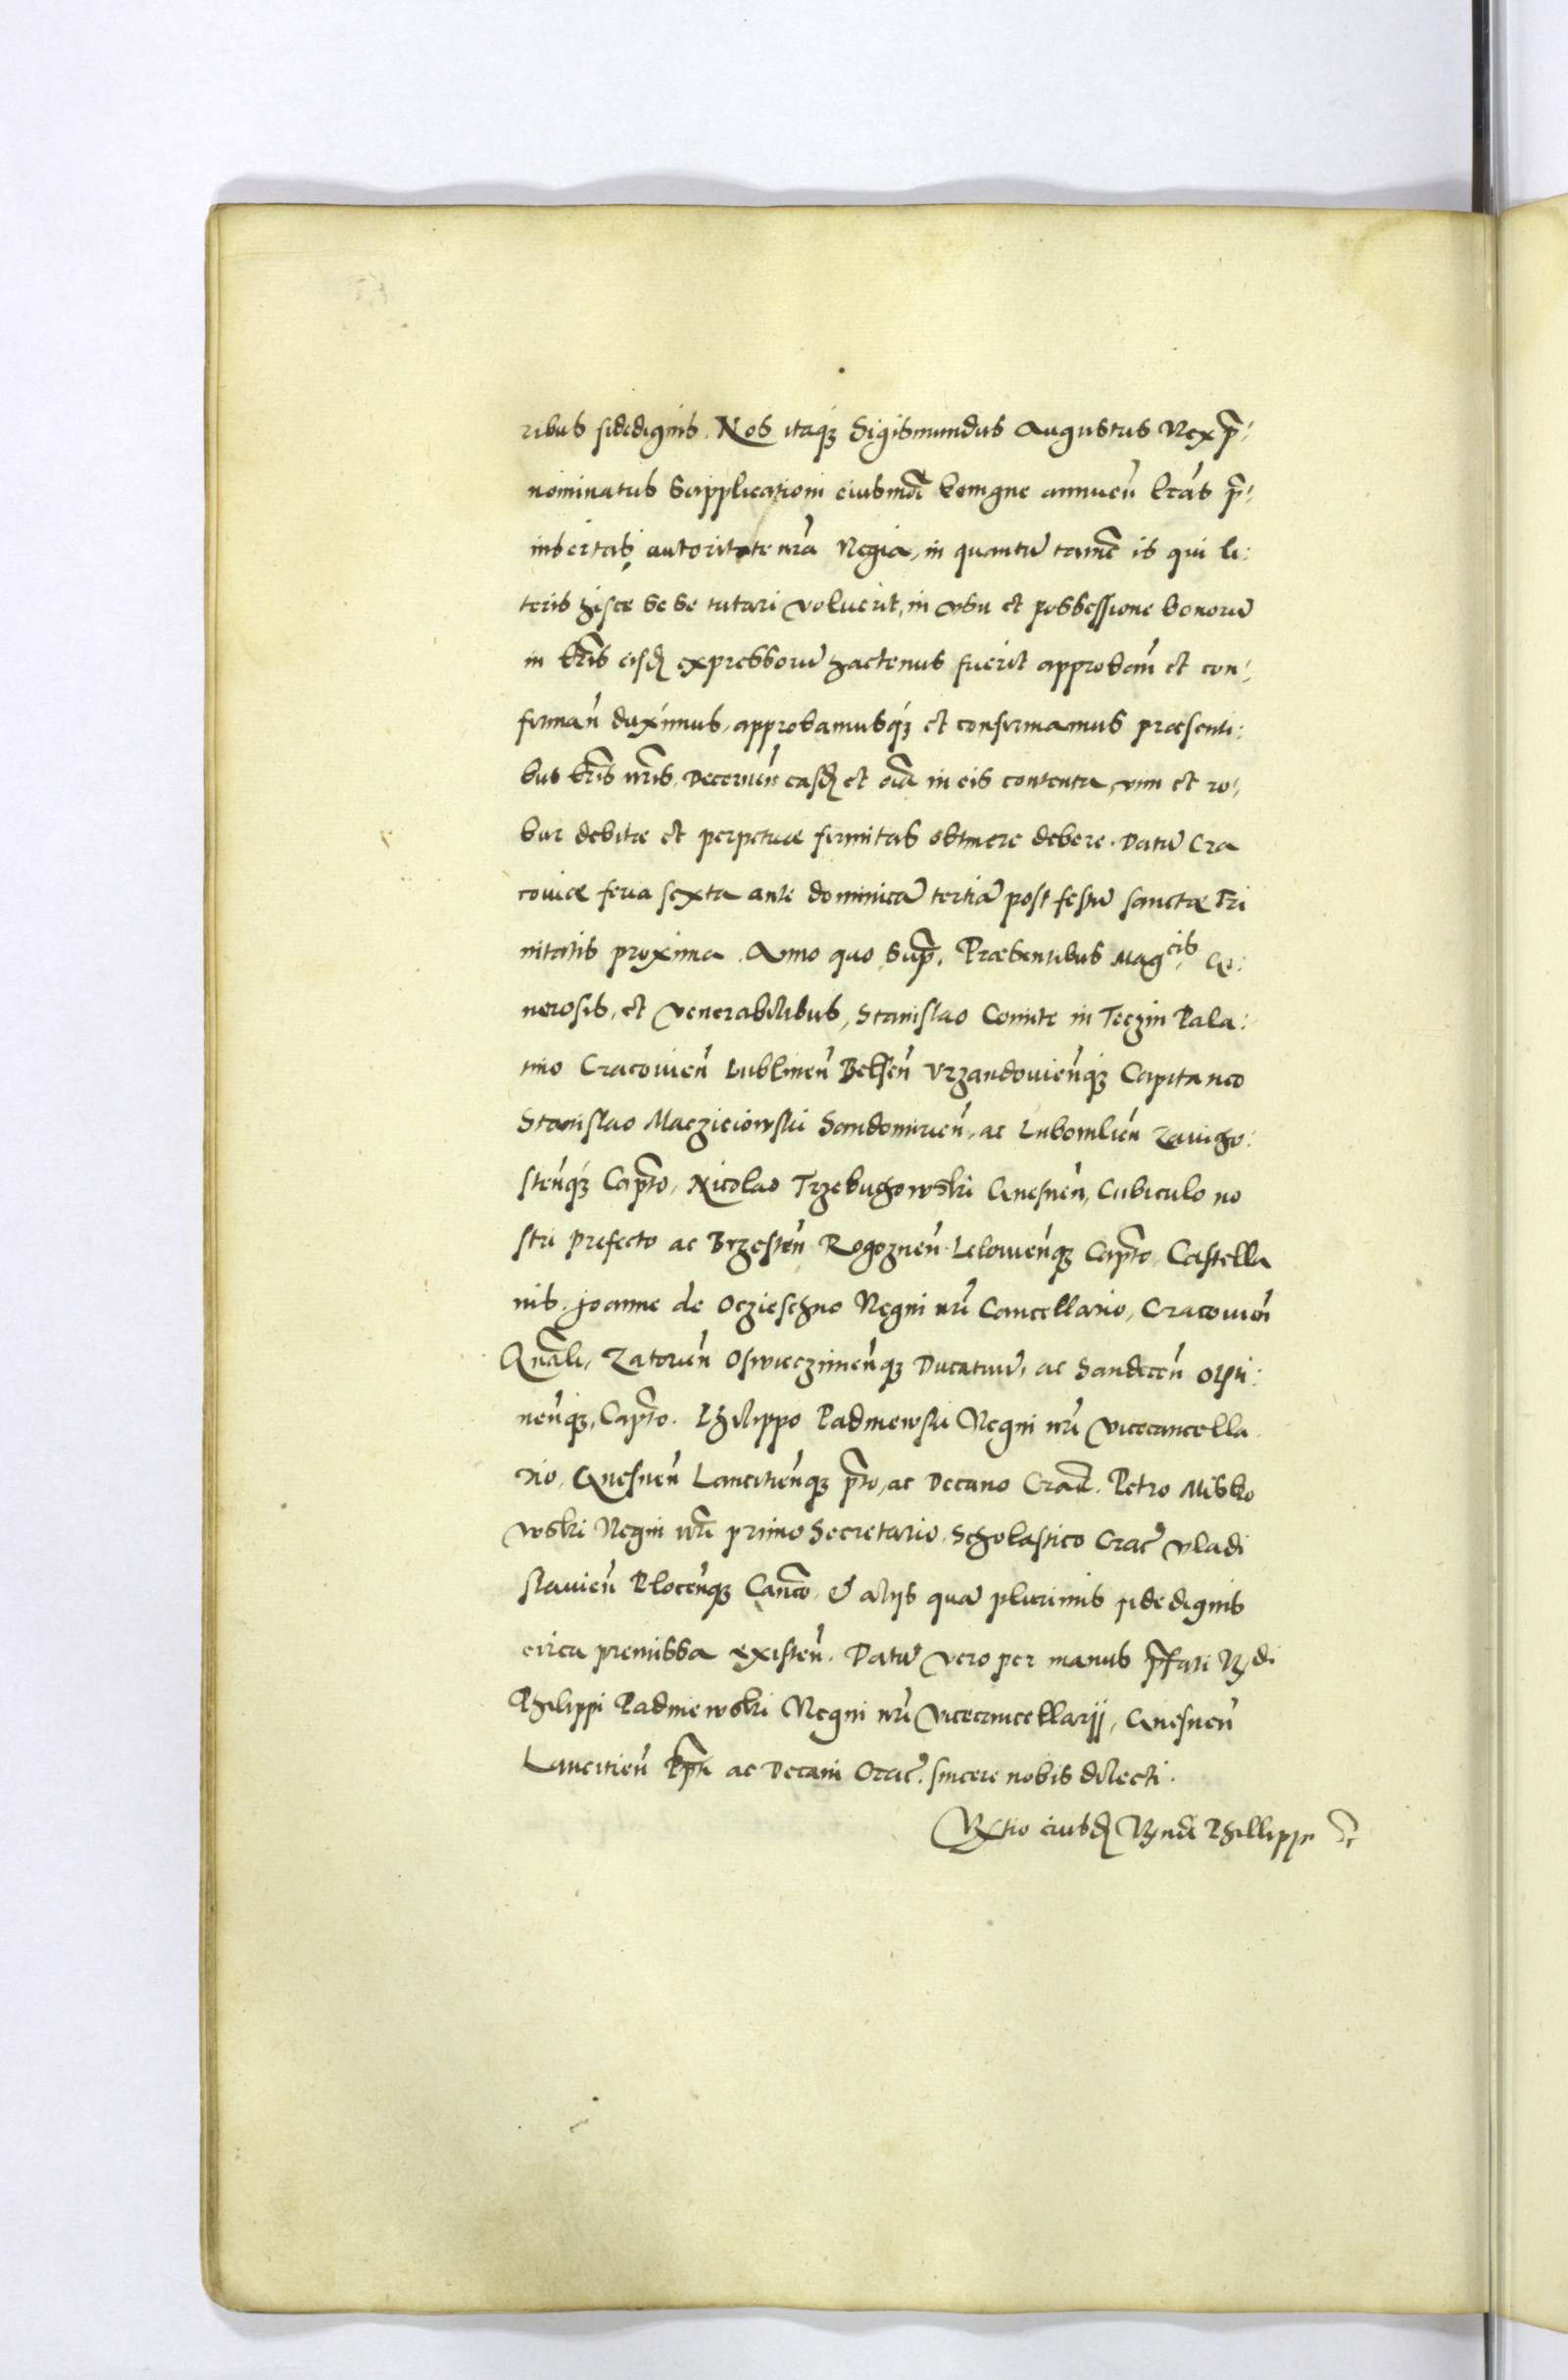 ribus fidedignis. Nos itaq₃ Sigismundus Augustus Rex p̄-
nominatus Supplicationi eiusmōi benigne annueñ lr̄as p̄-
insertas, autoritate nr̄a Regia, in quantū tamē is qui li:
teris hisce se se tutari voluerit, in vsu et possessione bonorū
in lr̄is eisd expressorū hactenus fuerit approbañ et con-
firmañ duximus, approbamusq₃ et confirmamus præsenti:
bus lr̄is nr̄is. Decerneñ easd et oīa in eis contenta, vim et ro-
bur debitæ et perpetuæ firmitatis obtinere debere. Datū Cra
couiæ feria sexta ante dominicā tertiā post festū sanctæ Tri
nitatis proxima. Anno quo sup̄. Præsentibus Mag^cis Ge:
nerosis, et Venerabilibus, Stanislao Comite in Teczin Pala:
tino Cracouieñ Lublineñ Belseñ Vrzandouieñq₃ Capitaneo
Stanislao Maczieiowski Sandomirieñ, ac Lubomlieñ Zauigo:
steñq₃ Cap̄to, Nicolao Trzebuchowski Gnesneñ, Cubiculo no
stri prefecto ac Brzesteñ Rogozneñ Lelouieñq₃ Cap̄to, Castella
nis. Joanne de Oczieschno Regni nr̄i Cancellario, Cracouieñ
Gnāli, Zatorieñ Oswieczimeñq₃ Ducatuū, ac Sandeceñ Olsti:
neñq₃, Cap̄to. Philippo Padniewski Regni nr̄i Vicecancella
rio, Gnesneñ Lancitieñq₃ p̄to, ac Decano Crac̄. Petro Misko
wski Regni nr̄i primo Secretario, Scholastico Crac̄ Vladi
slauieñ Ploceñq₃ Canc̄o, & alijs quā plurimis fide dignis
circa premissa existeñ. Datū vero per manus p̄fati R^di
Philippi Padniewski Regni nr̄i Vicecancellarij, Gnesneñ
Lancitieñ p̄pti ac Decani Crac̄. sincere nobis dilecti.
Rl̄tio eiusd R̄ndi Phillippi &c